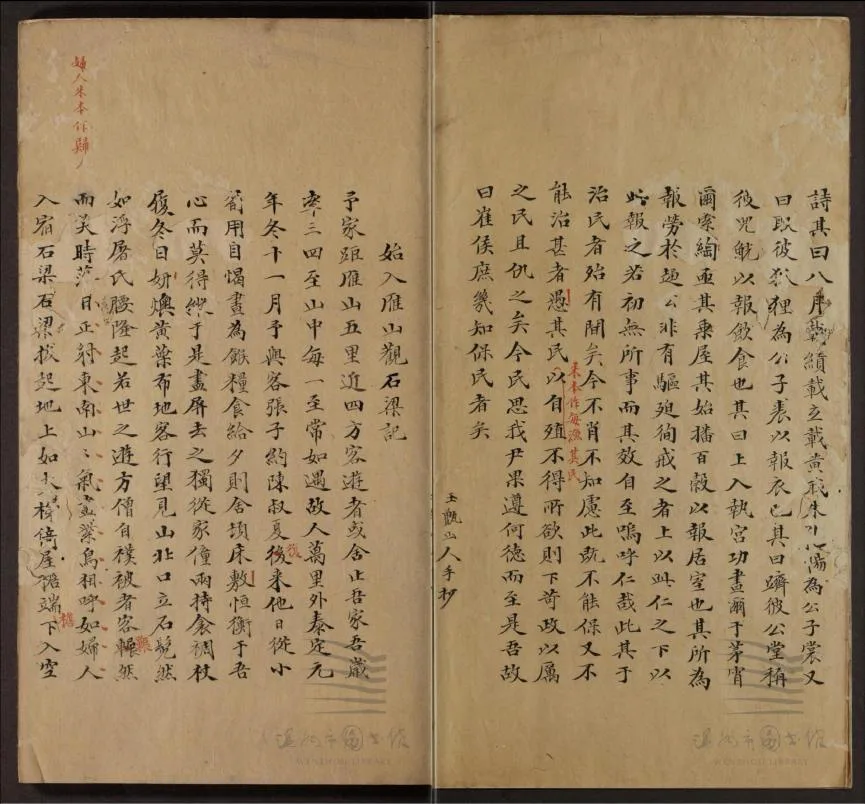 詩其曰八月載績載玄載黃我朱孔陽為公子裳又
曰取彼狐狸為公子裘以報衣也其曰躋彼公堂稱
彼兕觥以報飲食也其曰上入執宮功晝爾于茅宵
爾索綯亟其乗屋其始播百穀以報居室也其所為
報勞於趣公非有驅廹徇戒之者上以此仁之下以
此報之若初無所事而其效自至嗚呼仁哉此其于
治民者殆有間矣今不肖不知慮此旣不能保又不
能治甚者慿其民以自殖不得所欲則下苛政以厲
朱本作每漁其民
之民且仇之矣今民思我尹果遵何德而至是吾故
曰崔侯庶幾知保民者矣
玉甑山人手抄
始入雁山觀石梁記
予家距雁山五里近四方客遊者或舍止吾家吾歲
率三四至山中每一至常如遇故人萬里外泰定元
年冬十一月予與客張子約陳叔夏後来他日從小
復
蒟用自愒晝為餱糧食給夕則舍頃床敷恒衡于吾
心而莫得縱于是盡屏去之獨從家僮兩持衾裯杖
履冬日妍燠黃葉布地客行望見山北口立石髠然
如浮屠氏腰隆起若世之遊方僧自襆被者客輾然
囅
而笑時落日正射東南山〻氣蓊鬱鳥相呼如婦人
婦人朱本作歸人
入宿石梁石梁拔起地上如大梯倚屋簷端下入空
檐
温州市圖書館
WENZHOU LIBRARY
温州市圖書館
WENZHOU LIBRARY